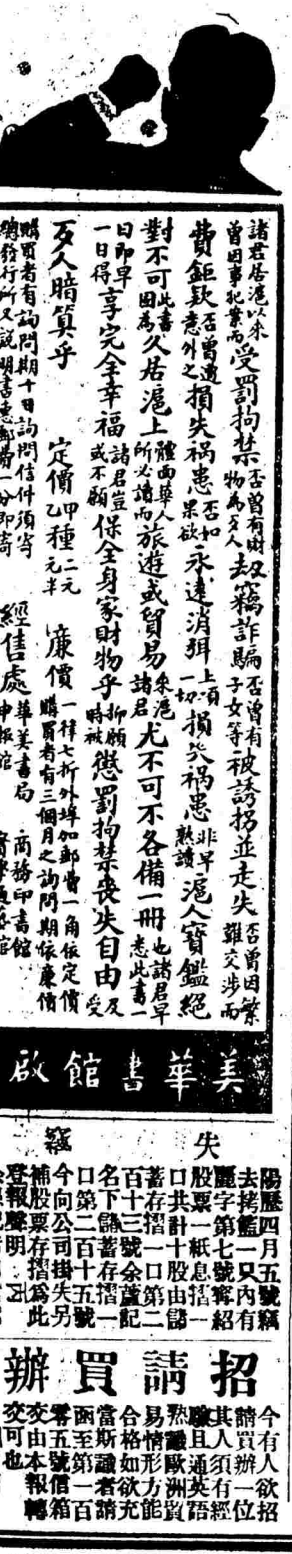 諸君居滬以來
曾因事犯案而
受罰拘禁
否曾有財
物為歹人
劫竊詐騙
否曾有
子女等
被誘拐並走失
否曾因繁
難交涉而
費鉅款
否曾遭
意外之
損失禍患
否如
果欲
永遠消弭
上項
一切
損失禍患
非早
熟讀
滬人寶鑑絕
對不可
此書
因為
久居滬上
體面華人
所必讀而
旅遊或貿易
來滬
諸君
尤不可不各備一冊
也諸君早
悉此書一
日即早
一日得
享完全幸福
諸君豈
或不願
保全身家財物乎
抑願
時被
懲罰拘禁喪失自由
及
受
歹人暗算乎
定價
甲種二元
乙種元半
廉價
一律七折外埠加郵費一角依定價
購買者有三個月之詢問期依廉價
購買者有詢問期十日詢問信件須寄
總發行所又說明書惠郵費一分即寄
經售處
華美書局
申報館
商務印書館
美華書館啟
失竊
陽歷四月五號竊
去拷籃一只內有
麗字第七號奪紹
股票一紙息摺一
口共計十股由儲
蓄存摺一口第二
百十三號余蘆記
名下儲蓄存摺一
口第二百十五號
今向公司掛失另
補股票存摺為此
登報聲明
招請買辦
今有人欲招
請買辦一位
其人須有經
驗且通英語
熟識歐洲貿
易情形方能
合格如欲充
當斯識者請
函至第一百
零五號信箱
交由本報轉
交可也